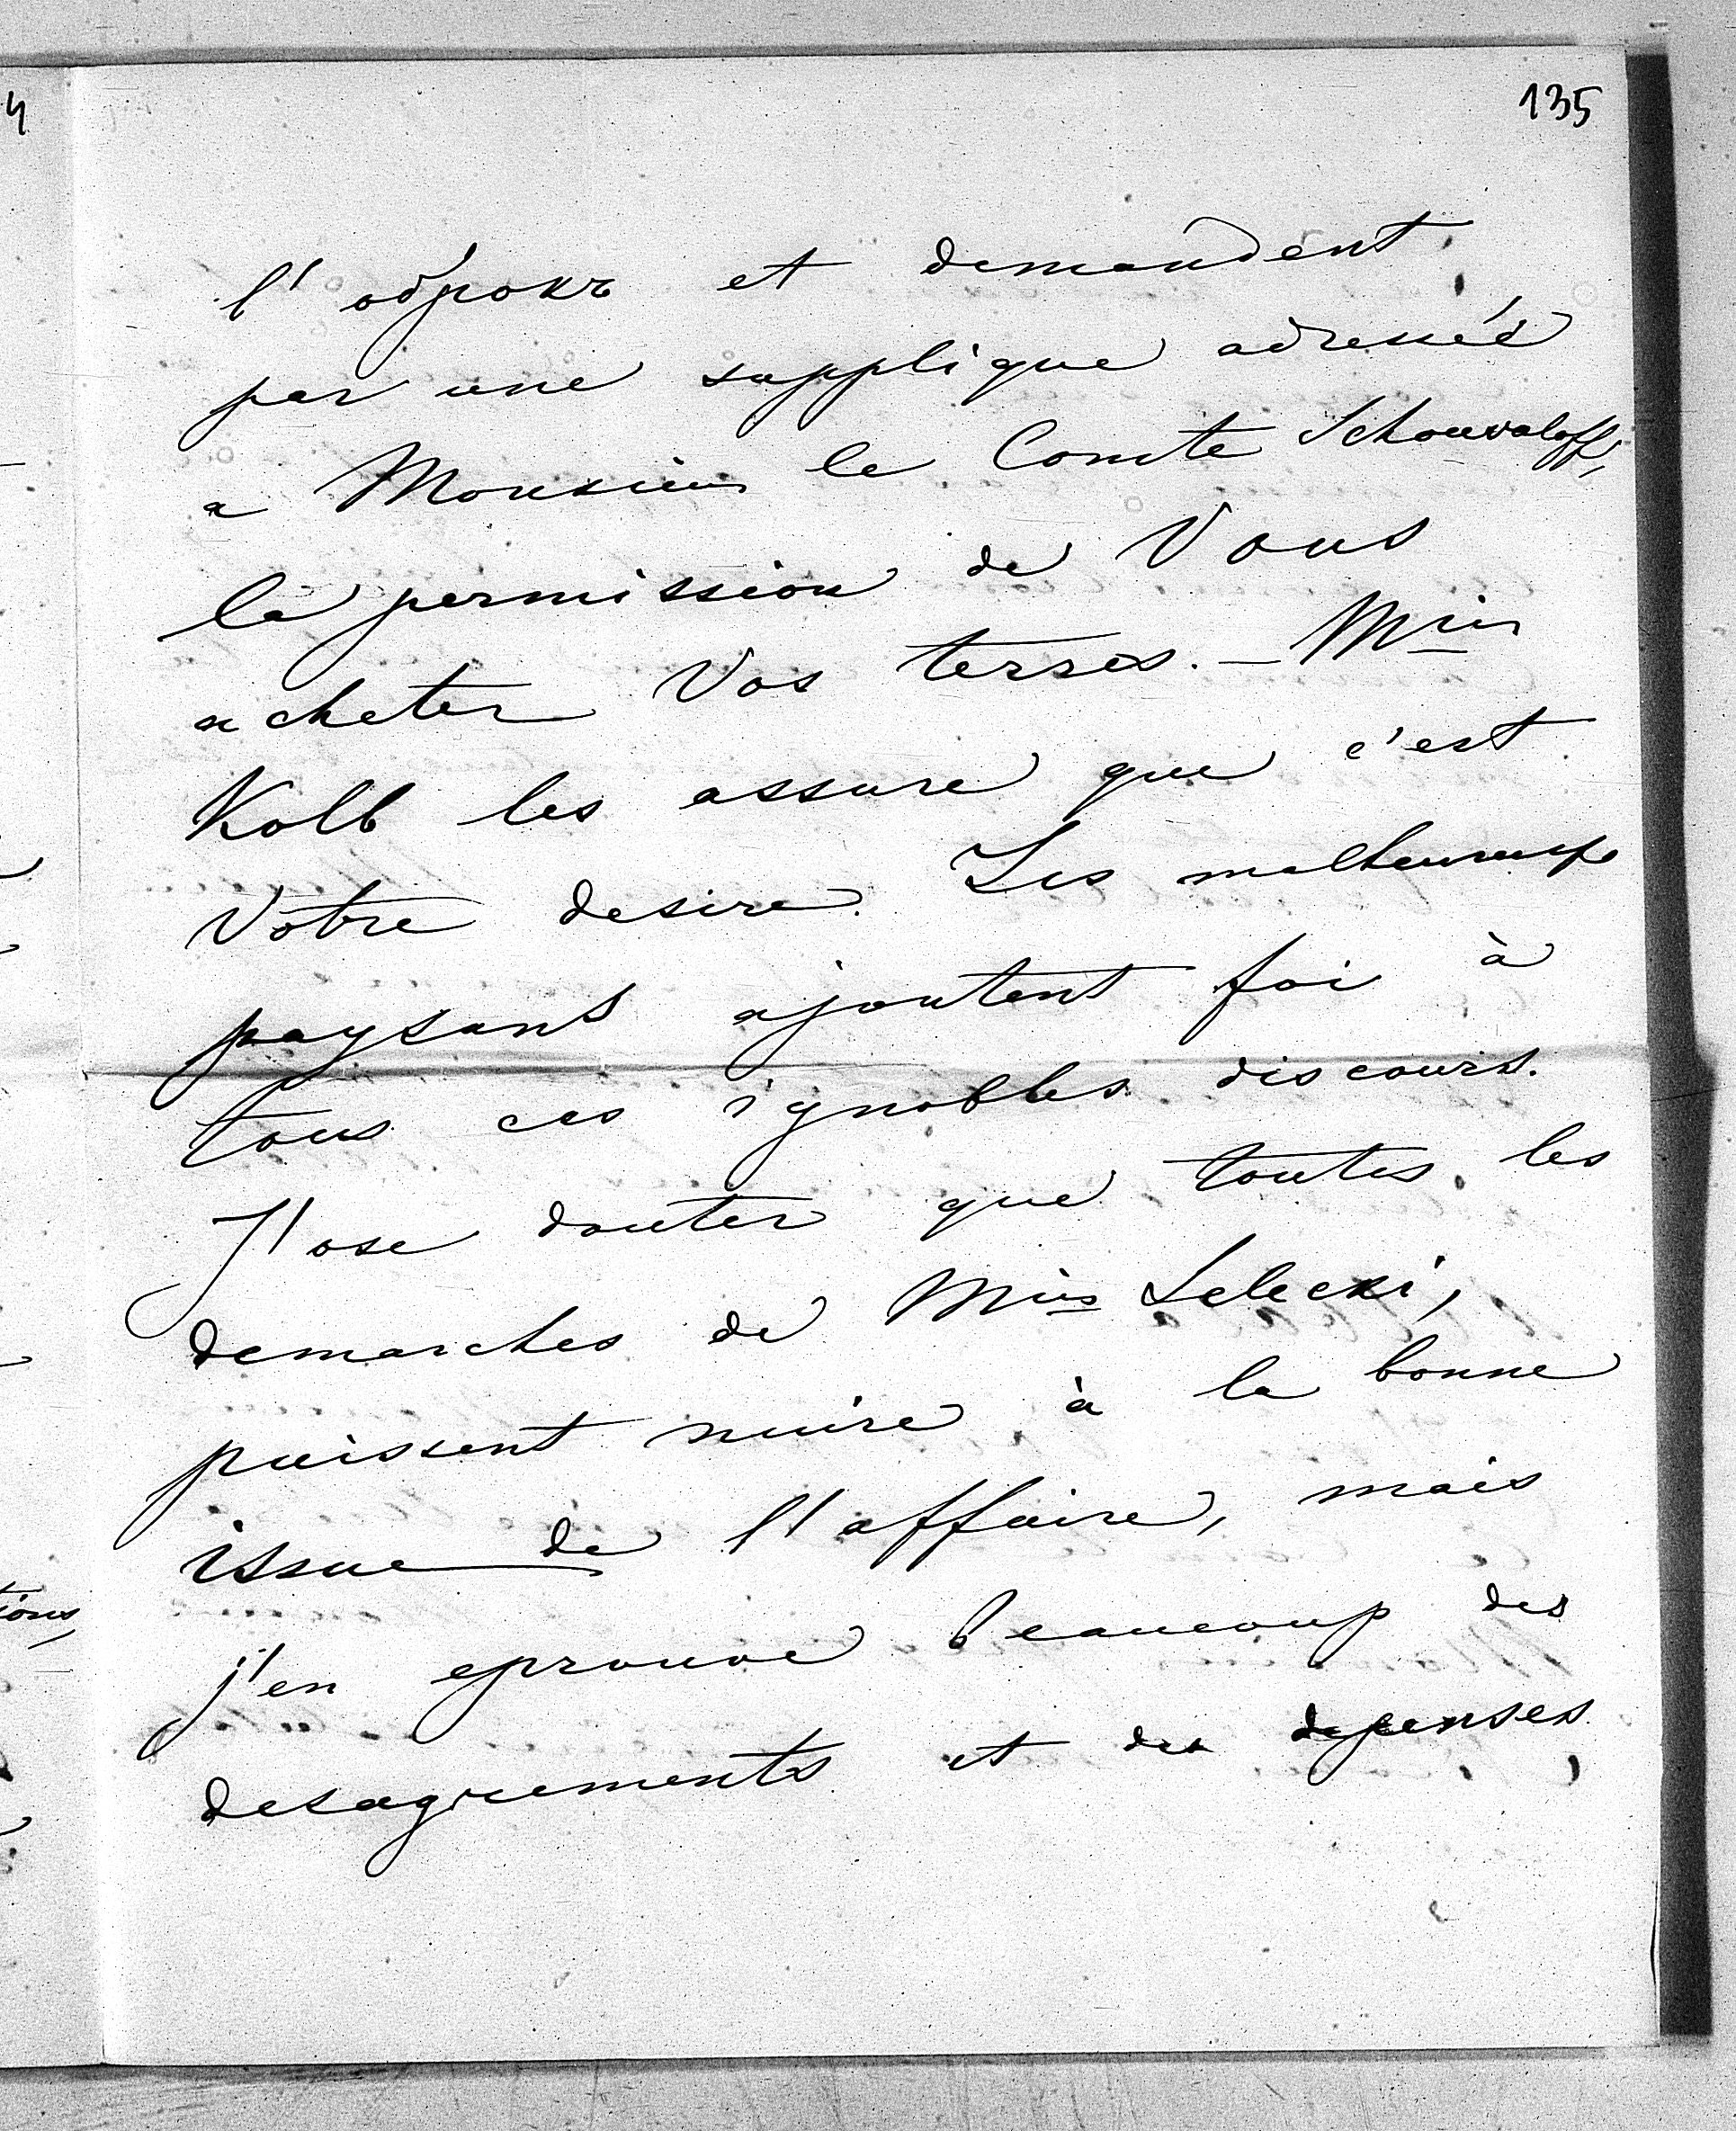 135
l'оброкъ et demandent,
par une supplique adressée
a Monsieur le Comte Schouvaloff,
la permission de Vous
acheter Vos terres. — Mrs
Kolb les assure que c'est
Votre desire. Les malheureux
paysans ajoutent foi à
tous ces ignobles discours.
J'ose douter que toutes les
demarches de Mrs Lelecki,
puissent nuire à la bonne
issue de l'affaire, mais
j'en eprouve beaucoup des
desagrements et des depenses,